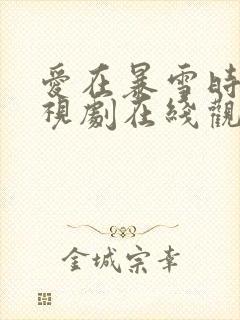 愛在暴雪時
視劇在綫觀
金城宗幸